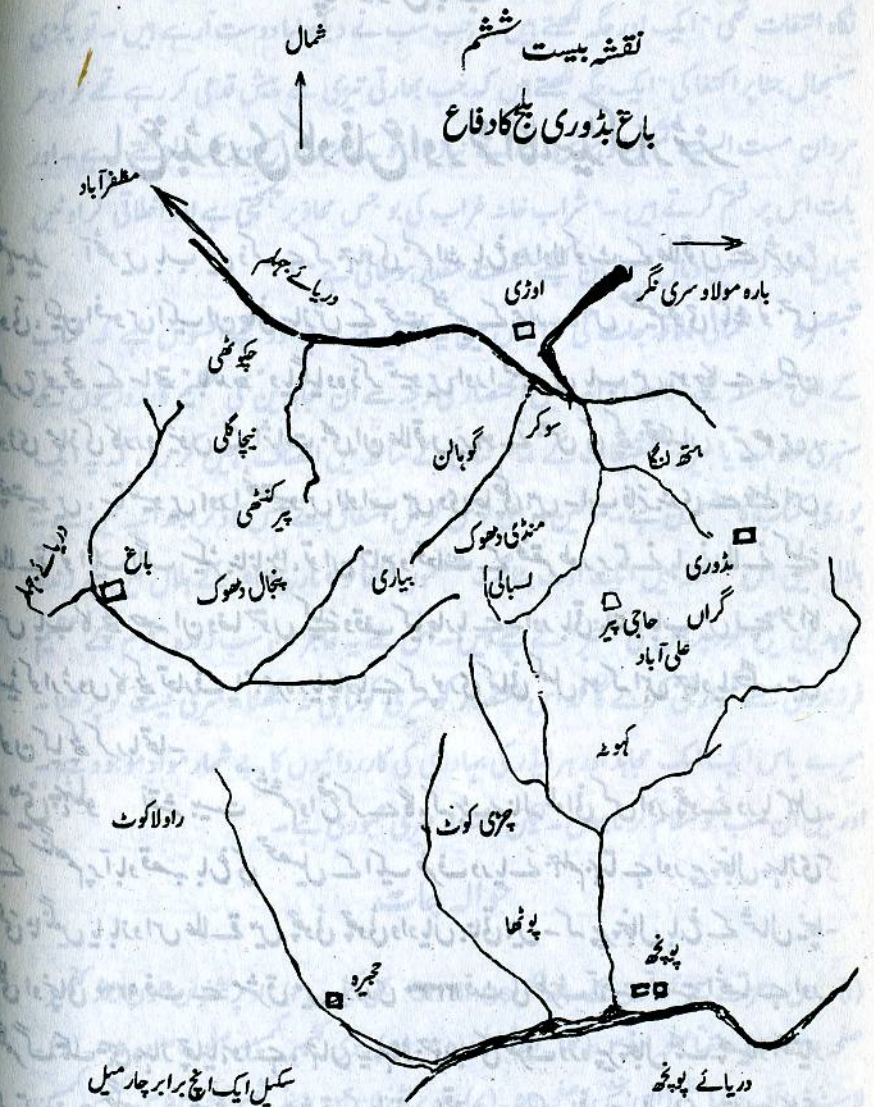 نقشہ بیست ششم
شمال
باغ بڈوری بلج کا دفاع
مظفر آباد
دریائے جہلم
اوڑی
بارہ مولا و سری نگر
چکوٹھی
سوکر
نیچا گلی
گوہالن
ہتھ لنگا
پیر کنٹھی
منڈی ڈھوک
دریائے جہلم
باغ
پنجال ڈھوک
بیاری
لسبالی
بڈوری
گراں
حاجی پیر
علی آباد
کہوٹہ
راولاکوٹ
چڑی کوٹ
پوٹھا
پونچھ
ہجیرہ
سکیل ایک انچ برابر چار میل
دریائے پونچھ